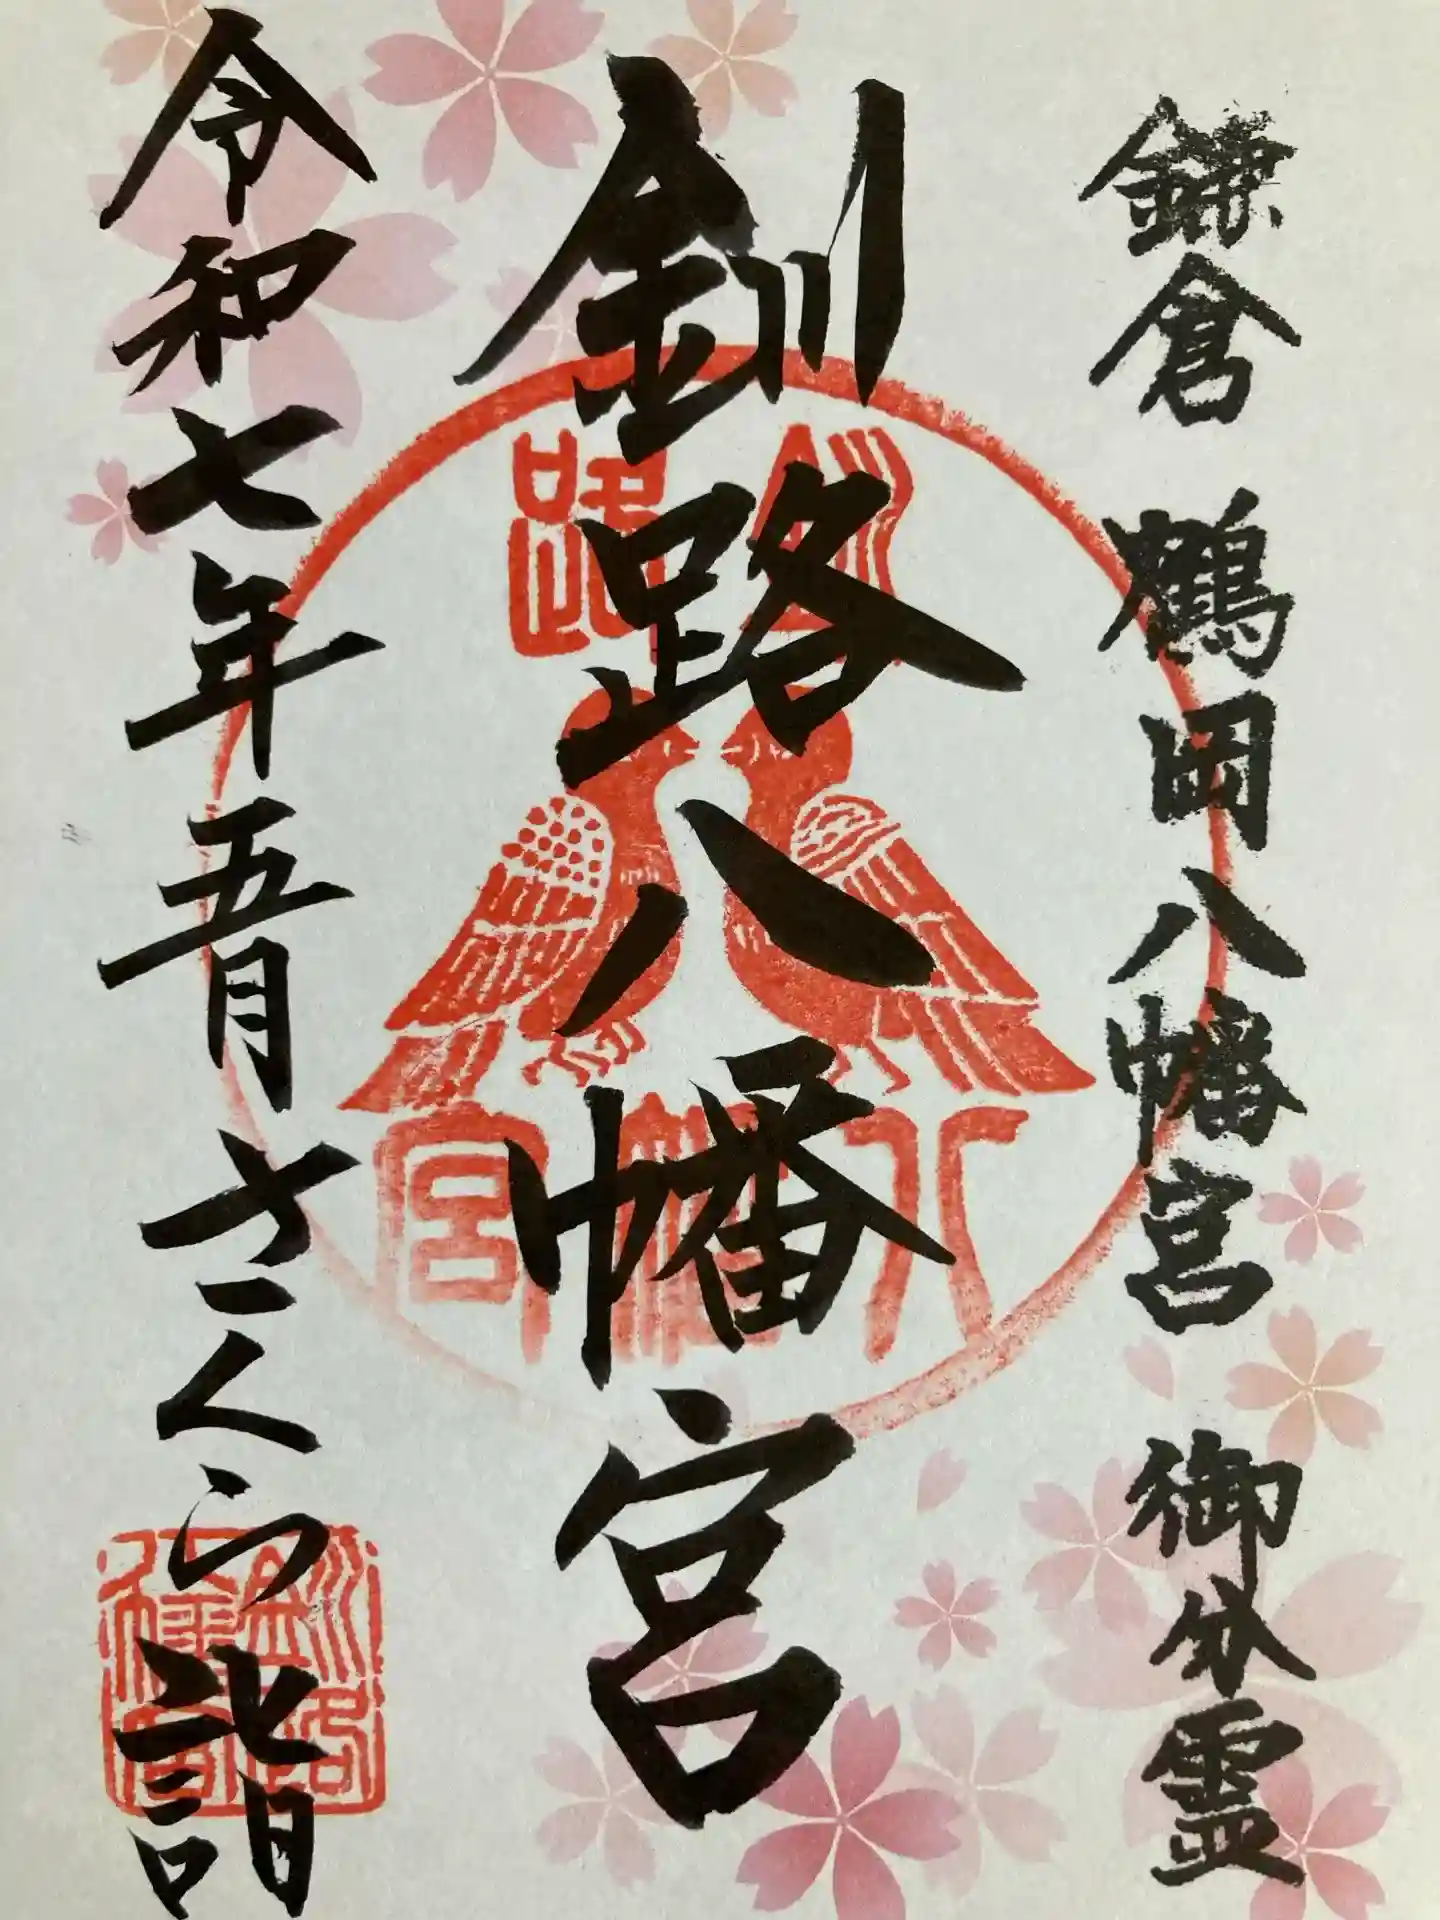 鎌倉 鶴岡八幡宮 御分霊
釧路八幡宮
釧路
八幡宮
令和七年五月さくら詣
釧路
八幡宮